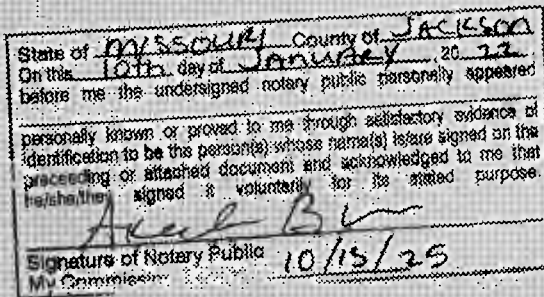 State of MISSOURI County of JACKSON
On this 10th day of JANUARY, 20 22
before me the undersigned notary public personally appeared
personally known or proved to me through satisfactory evidence of
identification to be the person(s) whose name(s) is/are signed on the
preceeding or attached document and acknowledged to me that
he/she/they signed it voluntarily for its stated purpose.
Signature of Notary Public
My Commission 10/15/25